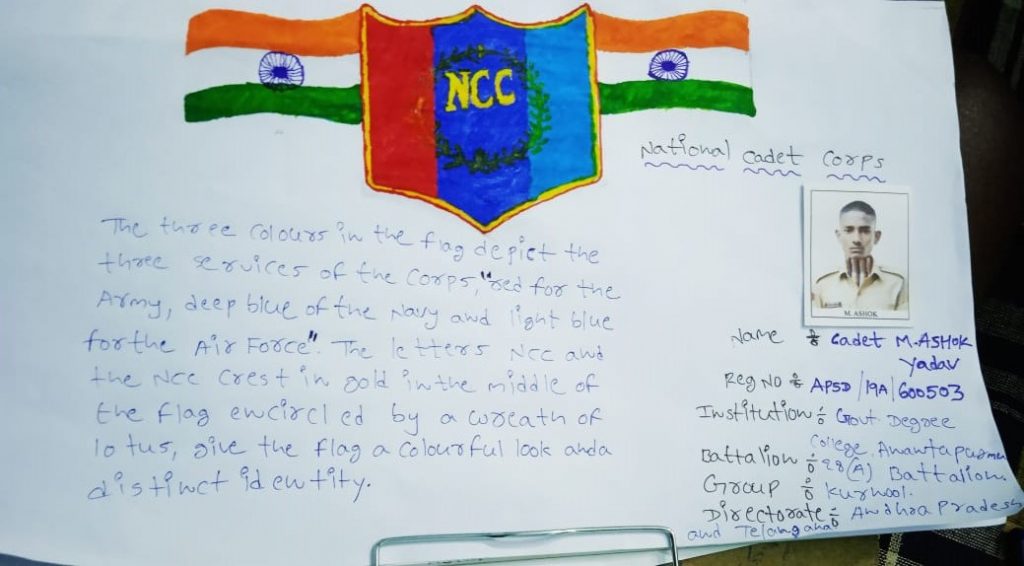 NCC
National Cadet Corps
The three colours in the flag depict the
three services of the corps, "red for the
Army, deep blue of the Navy and light blue
for the Air Force". The letters NCC and
the NCC Crest in gold in the middle of
the flag encircled by a wreath of
lotus, give the flag a colourful look and a
distinct identity.
M. ASHOK
Name : Cadet M.ASHOK
Yadav
Reg No : APSD/19A/600503
Institution : Govt. Degree
College, Anantapuramu
Battalion : 28(A) Battalion.
Group : Kurnool.
Directorate : Andhra Pradesh
and Telangana